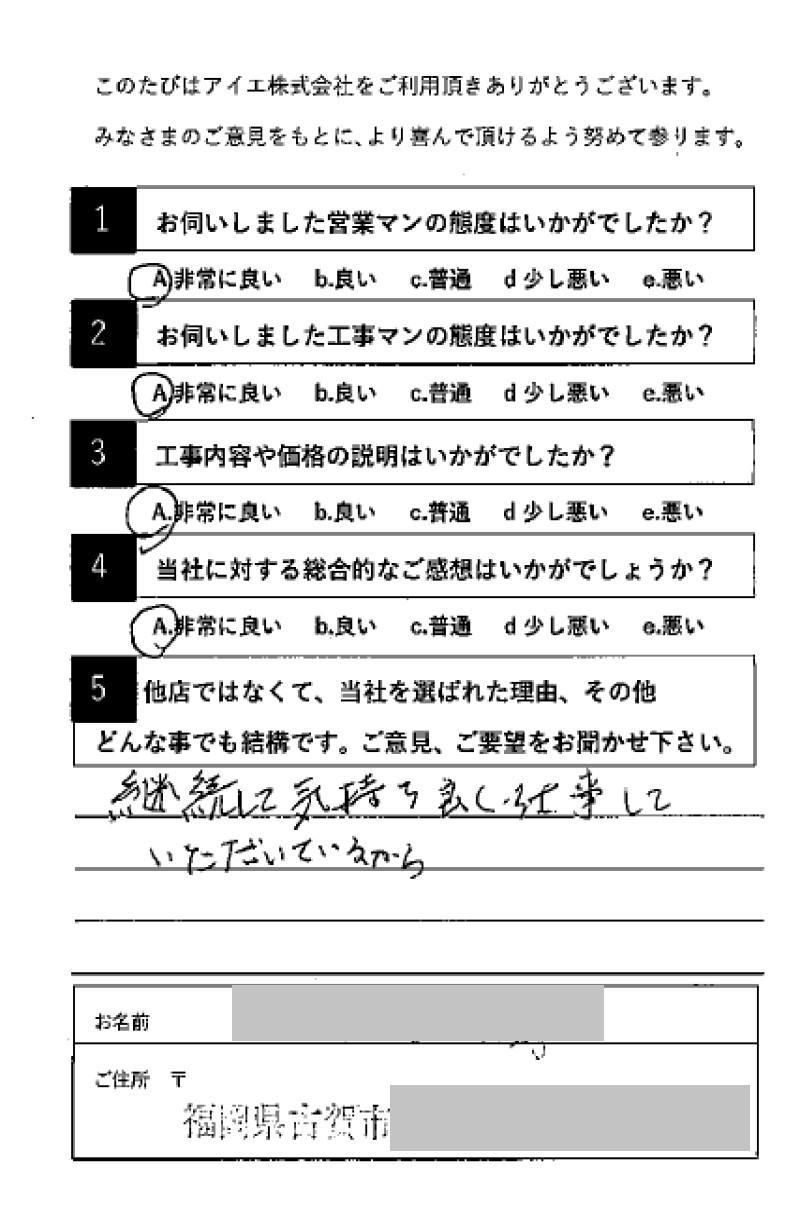 このたびはアイエ株式会社をご利用頂きありがとうございます。
みなさまのご意見をもとに、より喜んで頂けるよう努めて参ります。
1 お伺いしました営業マンの態度はいかがでしたか？
A.非常に良い b.良い c.普通 d 少し悪い e.悪い
2 お伺いしました工事マンの態度はいかがでしたか？
A.非常に良い b.良い c.普通 d 少し悪い e.悪い
3 工事内容や価格の説明はいかがでしたか？
A.非常に良い b.良い c.普通 d 少し悪い e.悪い
4 当社に対する総合的なご感想はいかがでしょうか？
A.非常に良い b.良い c.普通 d 少し悪い e.悪い
5 他店ではなくて、当社を選ばれた理由、その他
どんな事でも結構です。ご意見、ご要望をお聞かせ下さい。
継続して気持ち良く仕事して
いただいているから
お名前
ご住所 〒
福岡県古賀市